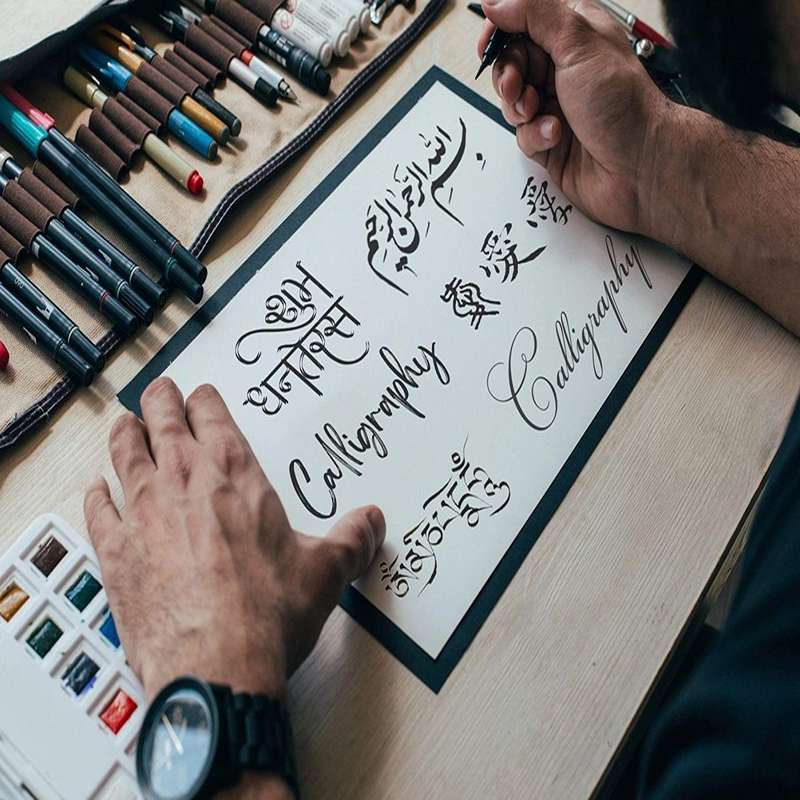 بسم الله الرحمن الرحيم
愛愛愛
शुभ
धनतेरस
Calligraphy
Calligraphy
ཨོཾ་མ་ཎི་པདྨེ་ཧཱུྃ